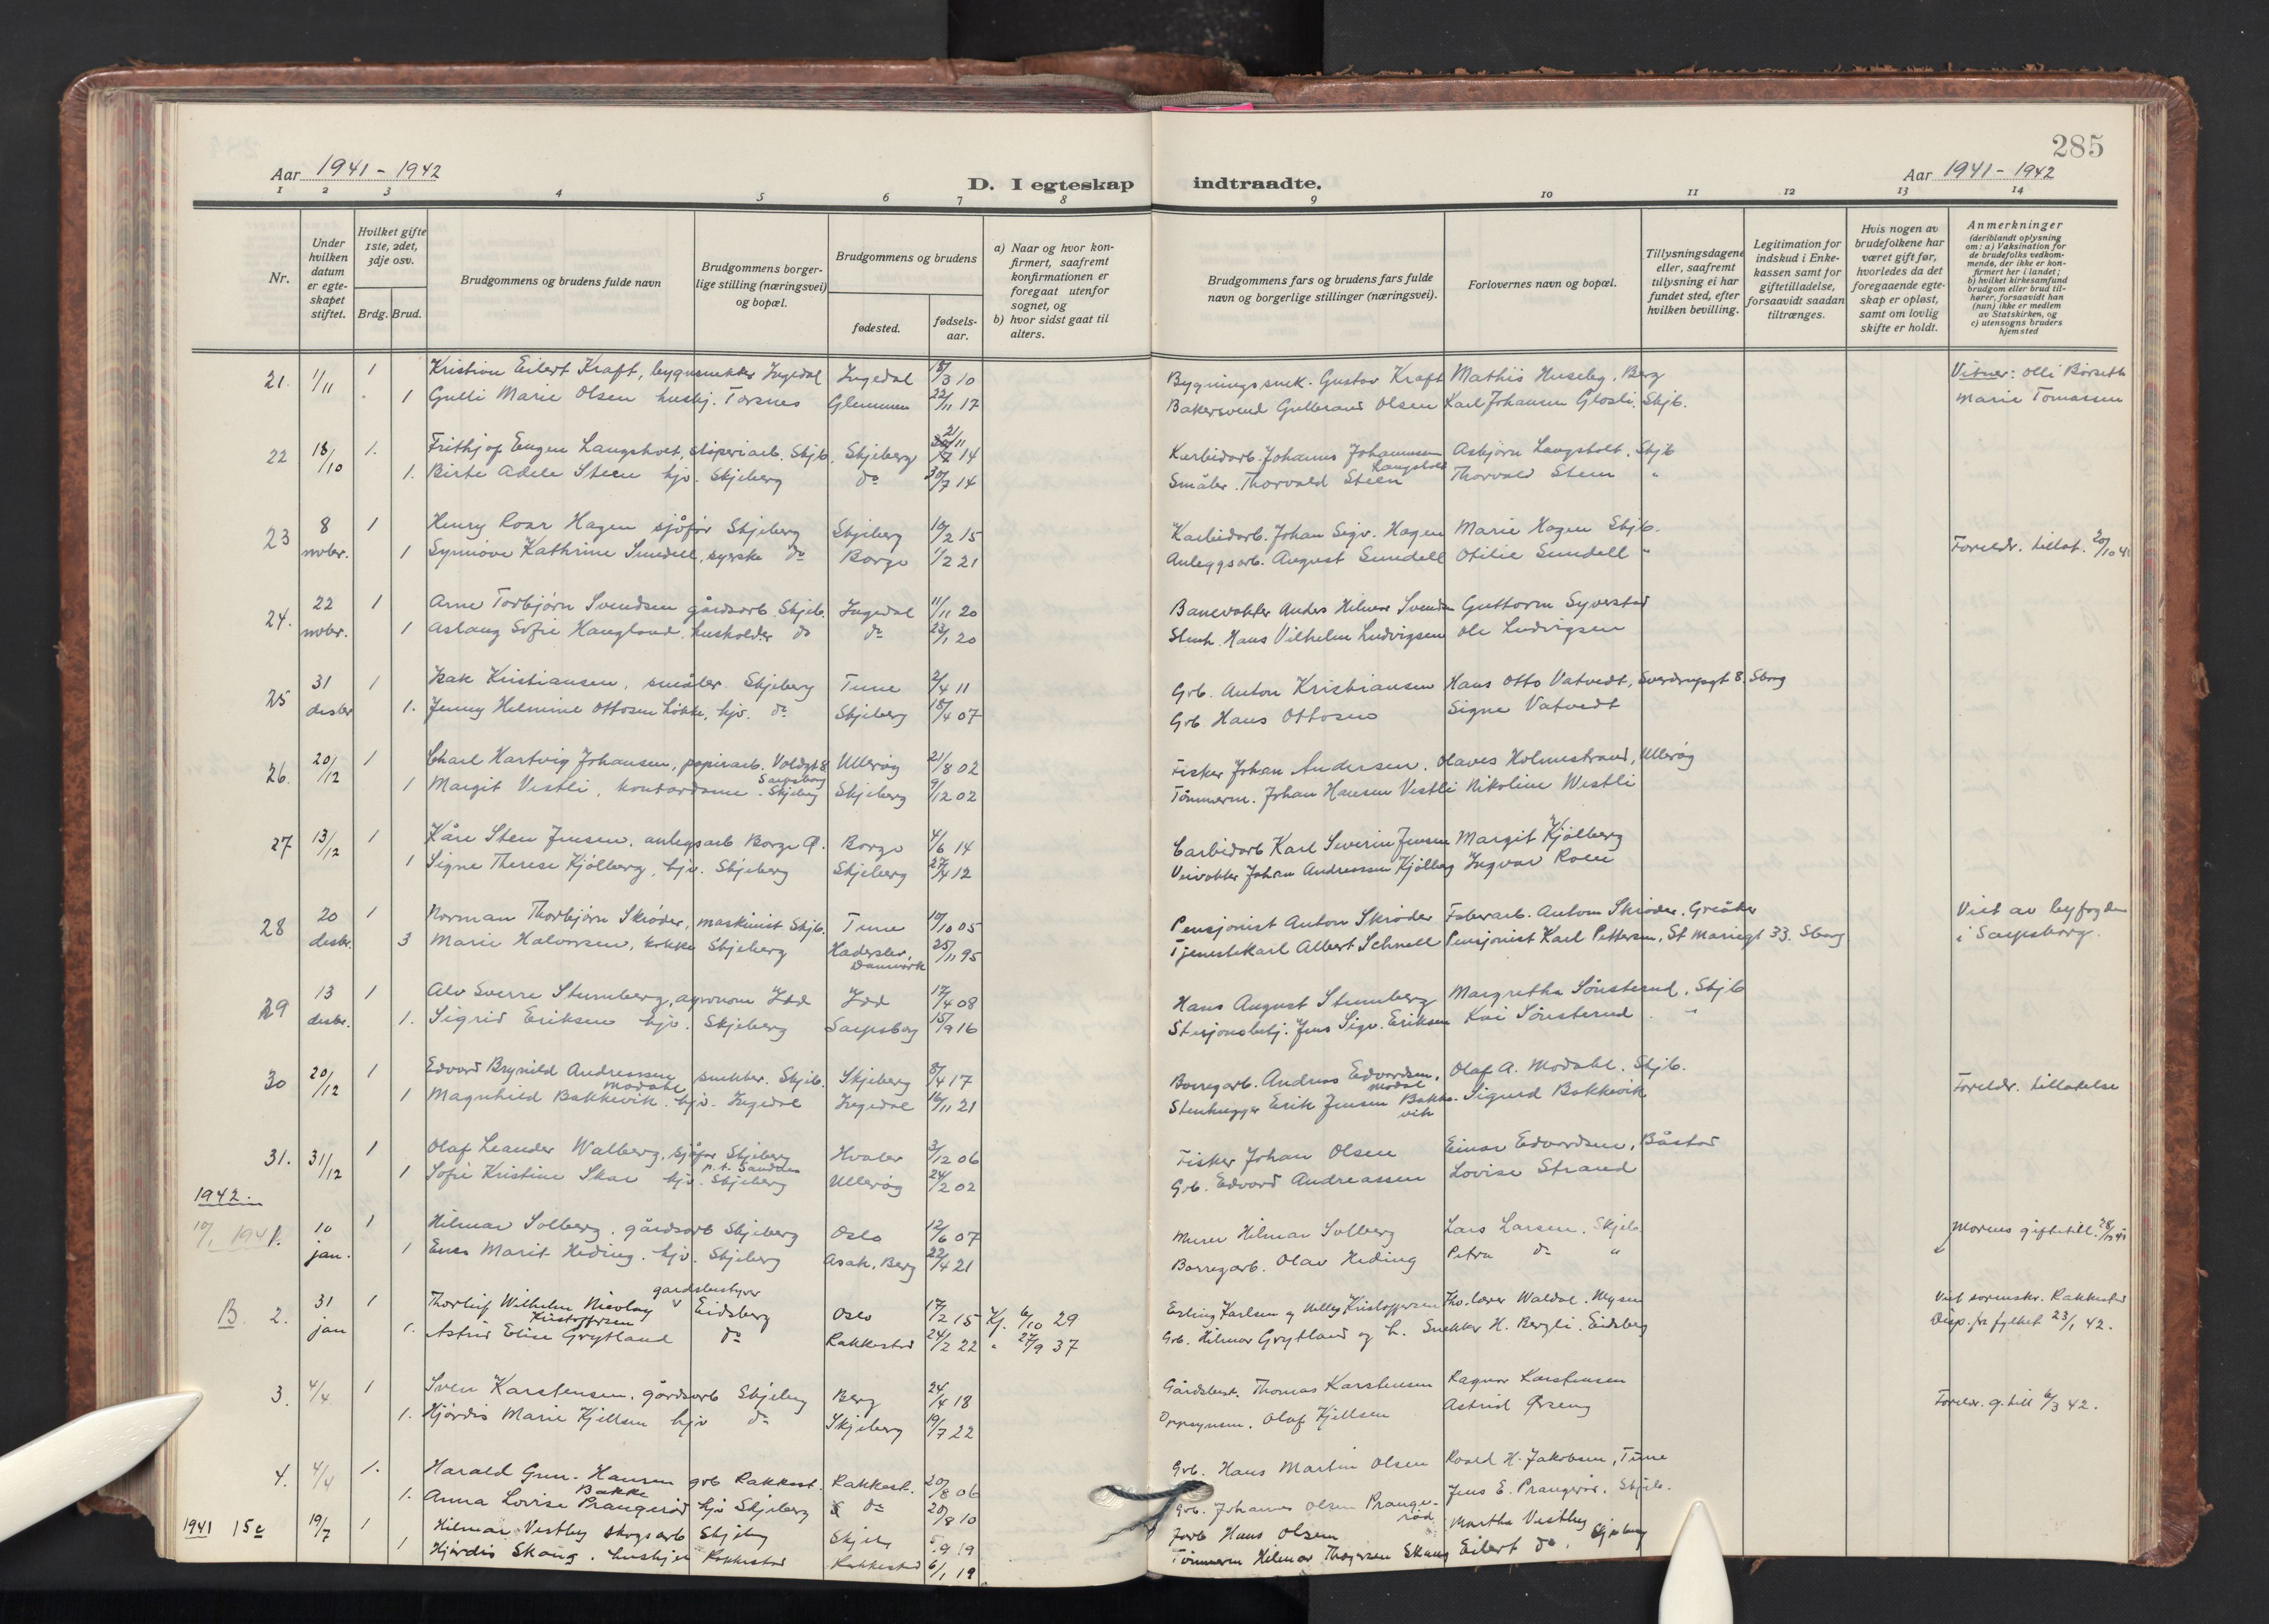 285
Aar 1941 - 1942
D. I egteskap indtraadte.
Aar 1941 - 1942
1 2 3 4 5 6 7 8 9 10 11 12 13 14
Nr.
Under hvilken datum er egte-skapet stiftet.
Hvilket gifte 1ste, 2det, 3dje osv.
Brdg. Brud.
Brudgommens og brudens fulde navn
Brudgommens borger-lige stilling (næringsvei) og bopæl.
Brudgommens og brudens
fødested.
fødsels-aar.
a) Naar og hvor kon-firmert, saafremt konfirmationen er foregaat utenfor sognet, og
b) hvor sidst gaat til alters.
Brudgommens fars og brudens fars fulde navn og borgerlige stillinger (næringsvei).
Forlovernes navn og bopæl.
Tillysningsdagene eller, saafremt tillysning ei har fundet sted, efter hvilken bevilling.
Legitimation for indskud i Enke-kassen samt for giftetilladelse, forsaavidt saadan tiltrænges.
Hvis nogen av brudefolkene har været gift før, hvorledes da det foregaaende egte-skap er opløst, samt om lovlig skifte er holdt.
Anmerkninger
(deriblandt oplysning om: a) Vaksination for de brudefolks vedkom-mende, der ikke er kon-firmert her i landet; b) hvilket kirkesamfund brudgom eller brud til-hører, forsaavidt han (hun) ikke er medlem av Statskirken, og c) utensogns bruders hjemsted
21. 1/11 1 Kristian Eilert Kraft, bygnsnekker Ingedal Ingedal 15/3 10 Bygningssnek. Gustav Kraft Mathis Huseby, Berg Vitner: Olli Børseth
1 Gulli Marie Olsen hushj. Torsnes Glemmen 22/11 17 Bakersvend Gulbrand Olsen Karl Johansen Glosli. Skjb. Marie Tomassen
22 18/10 1. Frithjof Eugen Langsholt, sliperiarb. Skjb. Skjeberg 21/11 14 Karbidarb. Johannes Johannessen Langsholt Asbjørn Langsholt. Skjb
1. Birte Adele Steen hjv. Skjeberg do 30/7 14 Småbr. Thorvald Steen Thorvald Steen "
23 8 1 Henry Roar Hagen sjåfør Skjeberg Skjeberg 10/2 15 Karbidarb. Johan Sigv. Hagen Marie Hagen Skjb.
novbr. 1 Synnøve Kathrine Sundell, syerske do Borge 1/2 21 Anleggsarb. August Sundell Otilie Sundell " Foreldr. tillat. 20/10 41
24. 22 1 Arne Torbjørn Svendsen gårdsarb. Skjeb. Ingedal 11/11 20 Banevokter Anders Hilmar Svendsen Guttorm Syverstad
novbr. 1 Aslaug Sofie Haugland. husholder. do do 23/1 20 Stenh. Hans Vilhelm Ludvigsen Ole Ludvigsen
25 31 1 Isak Kristiansen, småbr. Skjeberg Tune 2/4 11 Grb. Anton Kristiansen Hans Otto Vatvedt, Sverdrupsgt 8. Sborg
desbr 1. Jenny Helmine Ottosen Løkke, hjv. do Skjeberg 18/4 07 Grb Hans Ottosen Signe Vatvedt
26. 20/12 1 Charl Hartvig Johansen, papirarb. Voldgt 8 Sarpsborg Ullerøy 21/8 02 Fisker Johan Andersen. Olaves Holmestrand, Ullerøy
1 Margit Vestli, kontordame. Skjeberg Skjeberg 9/12 02 Tømmerm. Johan Hansen Vestli Nikoline Westli
27 13/12 1 Kåre Sten Jensen. anlegsarb Borge Borge 4/6 14 Carbidarb Karl Severin Jensen Margit Kjølberg
1 Signe Therese Kjølberg, hjv. Skjeberg Skjeberg 27/4 12 Veivokter Johan Andreassen Kjølberg Ingvar Roen
28 20 1 Norman Thorbjørn Skrøder, maskinist Skjb. Tune 10/10 05 Pensjonist Anton Skrøder Faberarb. Anton Skrøder. Greåker Viet av byfogden
desbr. 3 Marie Halvorsen, kokke Skjeberg Haderslev, Danmark 25/11 95 Tjenestekarl Albert Schnell Pensjonist Karl Pettersen, St Mariegt 33. Sborg i Sarpsborg.
29 13 1 Alv Sverre Stumberg, agronom Idd Idd 17/4 08 Hans August Stumberg Margretha Sønsterud. Skjb
desbr. 1. Sigrid Eriksen hjv. Skjeberg Sarpsborg 15/9 16 Stasjonsbetj. Jens Sigv. Eriksen Kai Sønsterud "
30 20/12 1 Edvard Brynild Andreassen Modahl snekker. Skjeb. Skjeberg 8/4 17 Borregarb. Andreas Edvardsen, Modal Olaf A. Modahl. Skjb.
1 Magnhild Bakkevik. hjv. Ingedal Ingedal 16/11 21 Stenhugger Erik Jensen Bakke-vik Sigurd Bakkevik Foreldr. tillatelse
31. 31/12 1 Olaf Leander Walberg, sjåfør Skjeberg p.t. Sandnes Hvaler 3/12 06 Fisker Johan Olsen Einar Edvardsen, Båstad
1 Sofie Kristine Skar hjv. Skjeberg Ullerøy 24/2 02 Grb. Edvard Andreassen Lovise Strand
1942.
10/1 1941. 10 1 Hilmar Solberg. gårdsarb Skjeberg Oslo 12/6 07 Murer Hilmar Solberg Lars Larsen. Skjeb. Morens giftetill. 28/12 41
jan. 1 Marit Heding. hjv. Skjeberg Asak, Berg 22/4 21 Borregarb. Olav Heding Petra do "
B 2. 31 1 Thorleif Wilhelm Nicolay Kristoffersen gardsbestyrer Eidsberg Oslo 17/2 15 Kf. 6/10 29 Erling Karlsen og Nelly Kristoffersen Tho. lærer Waldal. Mysen Viet sorenskr. Rakkestad
jan 1. Astrid Elise Grytland do Rakkestad 24/2 22 " 27/9 37 Grb. Hilmar Grytland og h. Snekker H. Bergli. Eidsberg Disp. fra fylket 23/1 42.
3. 4/4 1 Sven Karstensen. gårdsarb Skjeberg Berg 24/4 18 Gårdsbest. Thomas Karstensen Ragnar Karstensen
1. Hjørdis Marie Kjellsen hjv do Skjeberg 19/7 22 Oppsynsm. Olaf Kjellsen Astrid Foreldr. g. till 6/3 42.
4. 4/4 1. Harald Gun. Hansen Bakke grb Rakkest. Rakkest. 20/8 06 Grb. Hans Martin Olsen Roald H. Jakobsen, Tune
1. Anna Lovise Prangerød hjv Skjeberg do 20/8 10 Grb. Johannes Olsen Prange-rød Jens E. Prangerød. Skjeb.
1941 15c 19/7 1 Hilmar Vestby skogsarb Skjeberg Skjeb. 9 19 Jorb Hans Olsen Martha Vestby
1 Hjørdis Skaug. hushjelp Rakkestad Rakkestad 6/1 19 Tømmerm Hilmar Thogersen Skaug Eilert do. Skjeberg